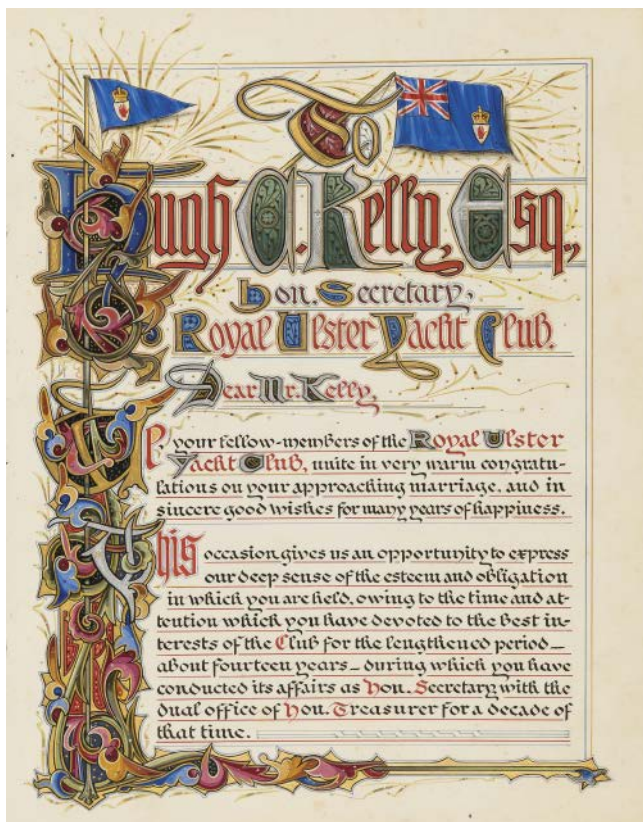 To
Hugh C. Kelly, Esq.,
Hon. Secretary,
Royal Ulster Yacht Club.
Dear Mr. Kelly,
We, your fellow-members of the Royal Ulster
Yacht Club, unite in very warm congratu-
lations on your approaching marriage, and in
sincere good wishes for many years of happiness.
This occasion gives us an opportunity to express
our deep sense of the esteem and obligation
in which you are held, owing to the time and at-
tention which you have devoted to the best in-
terests of the Club for the lengthened period —
about fourteen years — during which you have
conducted its affairs as Hon. Secretary with the
dual office of Hon. Treasurer for a decade of
that time.